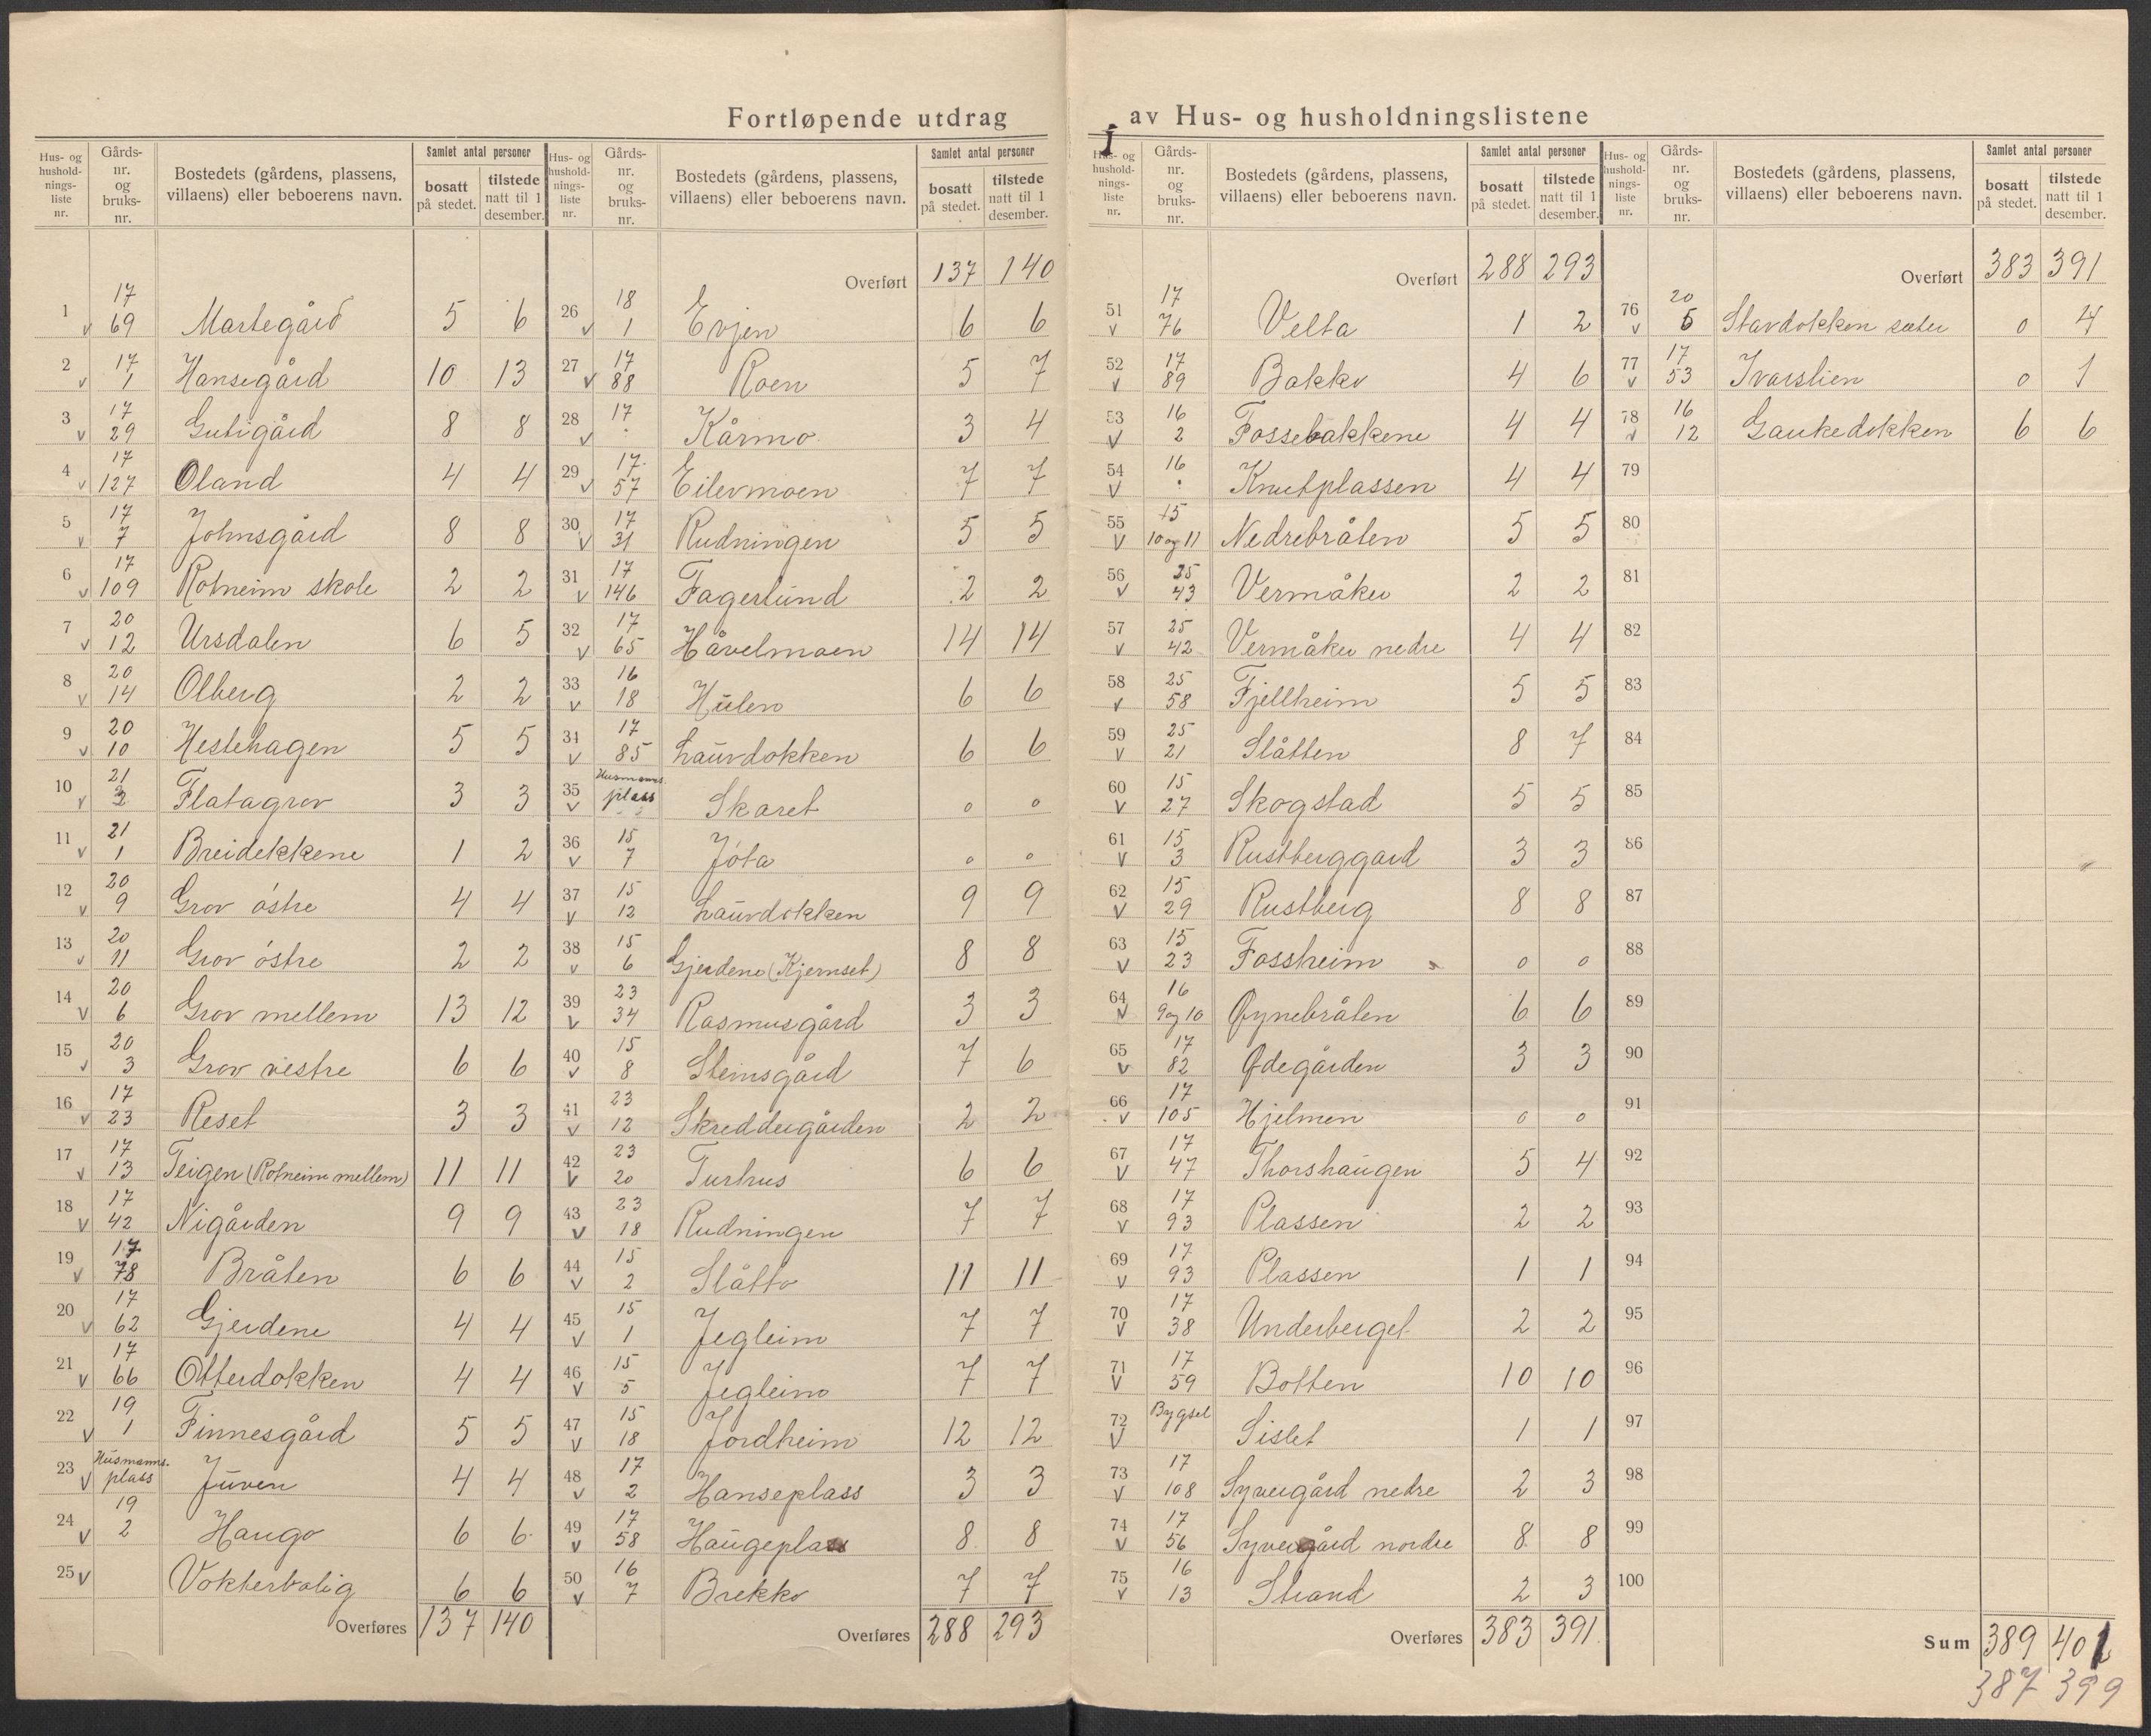 Fortløpende utdrag av Hus- og husholdningslistene
Hus- og husholdnings- liste nr. | Gårds- nr. og bruks- nr. | Bostedets (gårdens, plassens, villaens) eller beboerens navn. | Samlet antal personer bosatt på stedet. | tilstede natt til 1 desember.
1 v 17 69 Martegård 5 6
2 v 17 1 Hansegård 10 13
3 v 17 29 Gutigård 8 8
4 v 17 127 Oland 4 4
5 v 17 7 Johnsgård 8 8
6 v 17 109 Rotneim skole 2 2
7 v 20 12 Ursdalen 6 5
8 v 20 14 Olberg 2 2
9 v 20 10 Hestehagen 5 5
10 v 21 Flatagrov 3 3
11 v 21 1 Breidokkene 1 2
12 v 20 9 Grov østre 4 4
13 v 20 11 Grov østre 2 2
14 v 20 6 Grov mellem 13 12
15 v 20 3 Grov vestre 6 6
16 v 17 23 Reset 3 3
17 v 17 13 Teigen (Rotneim mellem) 11 11
18 v 17 42 Nigården 9 9
19 v 17 78 Bråten 6 6
20 v 17 62 Gjerdene 4 4
21 v 17 66 Otterdokken 4 4
22 v 19 1 Finnesgård 5 5
23 v Husmanns. plass Juven 4 4
24 v 19 2 Haugo 6 6
25 v Vokterbolig 6 6
Overføres 137 140
Hus- og husholdnings- liste nr. | Gårds- nr. og bruks- nr. | Bostedets (gårdens, plassens, villaens) eller beboerens navn. | Samlet antal personer bosatt på stedet. | tilstede natt til 1 desember.
Overført 137 140
26 v 18 1 Evjen 6 6
27 v 17 88 Roen 5 7
28 v 17 Kårmo 3 4
29 v 17 57 Eilevmoen 7 7
30 v 17 31 Rudningen 5 5
31 v 17 146 Fagerlund 2 2
32 v 17 65 Håvelmoen 14 14
33 v 16 18 Hulen 6 6
34 v 17 85 Laurdokken 6 6
35 v Husmanns. plass Skaret 0 0
36 v 15 7 Jøta 0 0
37 v 15 12 Laurdokken 9 9
38 v 15 6 Gjerdene (Kjernset) 8 8
39 v 23 34 Rasmusgård 3 3
40 v 15 8 Steinsgård 7 6
41 v 23 12 Skreddergården 2 2
42 v 23 20 Turhus 6 6
43 v 23 18 Rudningen 7 7
44 v 15 2 Slåtto 11 11
45 v 15 1 Jegleim 7 7
46 v 15 5 Jegleim 7 7
47 v 15 18 Jordheim 12 12
48 v 17 2 Hanseplass 3 3
49 v 17 58 Haugeplass 8 8
50 v 16 7 Brekko 7 7
Overføres 288 293
Hus- og husholdnings- liste nr. | Gårds- nr. og bruks- nr. | Bostedets (gårdens, plassens, villaens) eller beboerens navn. | Samlet antal personer bosatt på stedet. | tilstede natt til 1 desember.
Overført 288 293
51 v 17 76 Velta 1 2
52 v 17 89 Bakko 4 6
53 v 16 2 Fossebakkene 4 4
54 v 16 Knutplassen 4 4
55 v 15 10 og 11 Nedrebråten 5 5
56 v 25 43 Vermåker 2 2
57 v 25 42 Vermåker nedre 4 4
58 v 25 58 Fjellheim 5 5
59 v 25 21 Slåtten 8 7
60 v 15 27 Skogstad 5 5
61 v 15 3 Rustberggard 3 3
62 v 15 29 Rustberg 8 8
63 v 15 23 Fossheim 0 0
64 v 16 9 og 10 Øynebråten 6 6
65 v 17 82 Ødegården 3 3
66 v 17 105 Hjelmen 0 0
67 v 17 47 Thorshaugen 5 4
68 v 17 93 Plassen 2 2
69 v 17 93 Plassen 1 1
70 v 17 38 Underberget 2 2
71 v 17 59 Botten 10 10
72 v Bygsel Sislet 1 1
73 v 17 108 Syvergård nedre 2 3
74 v 17 56 Syvergård nordre 8 8
75 v 16 13 Strand 2 3
Overføres 383 391
Hus- og husholdnings- liste nr. | Gårds- nr. og bruks- nr. | Bostedets (gårdens, plassens, villaens) eller beboerens navn. | Samlet antal personer bosatt på stedet. | tilstede natt til 1 desember.
Overført 383 391
76 v 20 5 Stavdokken sæter 0 4
77 v 17 53 Ivarslien 0 1
78 v 16 12 Gaukedokken 6 6
79
80
81
82
83
84
85
86
87
88
89
90
91
92
93
94
95
96
97
98
99
100
Sum 389 402
387 399